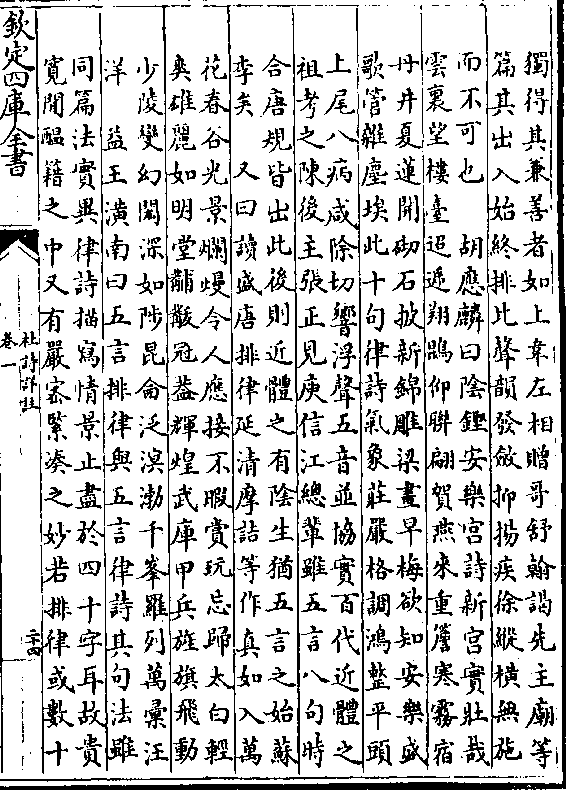 獨得其兼善者如上韋左相贈哥舒翰謁先主廟等
篇其出入始終排比聲韻發斂抑揚疾徐縱橫無施
而不可也　胡應麟曰陰鏗安樂宮詩新宮實壯哉
雲裏望樓臺迢遞翔鵾仰聯翩賀燕來重簷寒霧宿
丹井夏蓮開砌石披新錦雕梁畫早梅欲知安樂盛
歌管雜塵埃此十句律詩氣象莊嚴格調鴻整平頭
上尾八病咸除切響浮聲五音並協實百代近體之
祖考之陳後主張正見庾信江總輩雖五言八句時
合唐規皆出此後則近體之有陰生猶五言之始蘇
李矣　又曰讀盛唐排律延清摩詰等作真如入萬
花春谷光景爛熳令人應接不暇賞玩忘歸太白輕
爽雄麗如明堂黼黻冠葢輝煌武庫甲兵旌旗飛動
少陵變幻閎深如陟昆侖泛溟渤千峯羅列萬彙汪
洋　益王潢南曰五言排律與五言律詩其句法雖
同篇法實異律詩描寫情景止盡於四十字耳故貴
寬閒醖籍之中又有嚴密緊湊之妙若排律或數十
欽定四庫全書
杜詩詳註
卷一
二十四